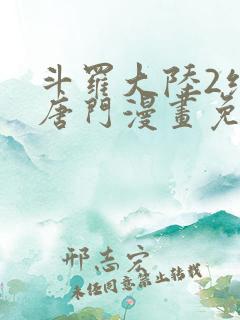 斗羅大陸2
唐門漫畫免
邢志宏
未經同意禁止轉載